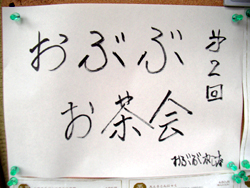 第2回
おぶぶ
お茶会
おぶぶ茶苑